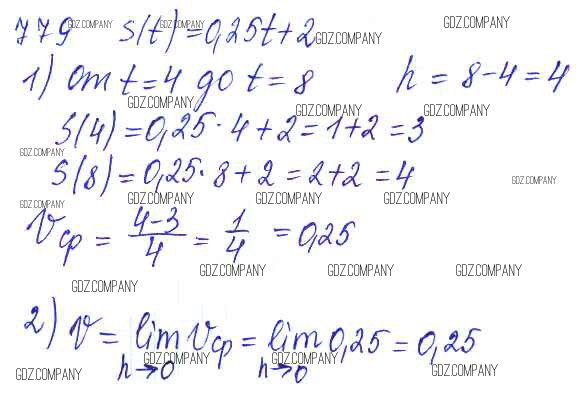 779 s(t)=0,25t+2
1) от t=4 до t=8 h=8-4=4
S(4)=0,25·4+2=1+2=3
S(8)=0,25·8+2=2+2=4
Vср = (4-3)/4 = 1/4 = 0,25
2) v = lim Vср = lim 0,25 = 0,25
h→0 h→0
GDZ.COMPANY GDZ.COMPANY GDZ.COMPANY
GDZ.COMPANY
GDZ.COMPANY GDZ.COMPANY GDZ.COMPANY
GDZ.COMPANY GDZ.COMPANY
GDZ.COMPANY GDZ.COMPANY GDZ.COMPANY GDZ.COMPANY
GDZ.COMPANY GDZ.COMPANY GDZ.COMPANY
GDZ.COMPANY
GDZ.COMPANY GDZ.COMPANY
GDZ.COMPANY GDZ.COMPANY